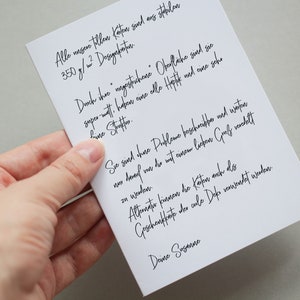 Alle unsere tollen Karten sind aus stabilen
350 g/m2 Designkarton.
Durch ihre "ungestrichene" Oberfläche sind sie
super matt, haben eine edle Haptik und eine sehr
feine Struktur.
Sie sind ohne Probleme beschreibbar und warten
nur darauf von dir mit einem lieben Gruß veredelt
zu werden.
Alternativ können die Karten auch als
Geschenkkarte oder coole Deko verwendet werden.
Deine Susanne